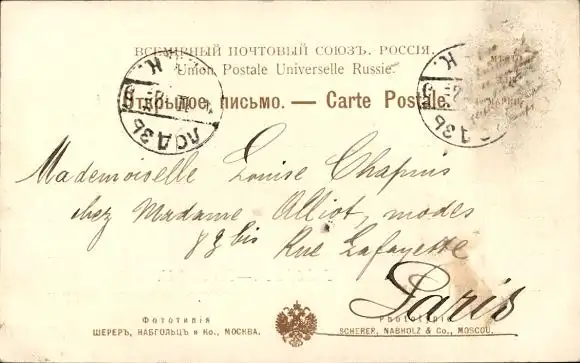 ВСЕМІРНЫЙ ПОЧТОВЫЙ СОЮЗЪ. РОССІЯ.
Union Postale Universelle Russie.
Открытое письмо. — Carte Postale.
ЛОДЗЬ
Mademoiselle Louise Chapuis
chez Madame Alliot, modes
82 bis Rue Lafayette
Paris
Фототипія
ШЕРЕРЪ, НАБГОЛЬЦЪ и Ко., МОСКВА.
Phototypie
SCHERER, NABHOLZ & Co., MOSCOU.